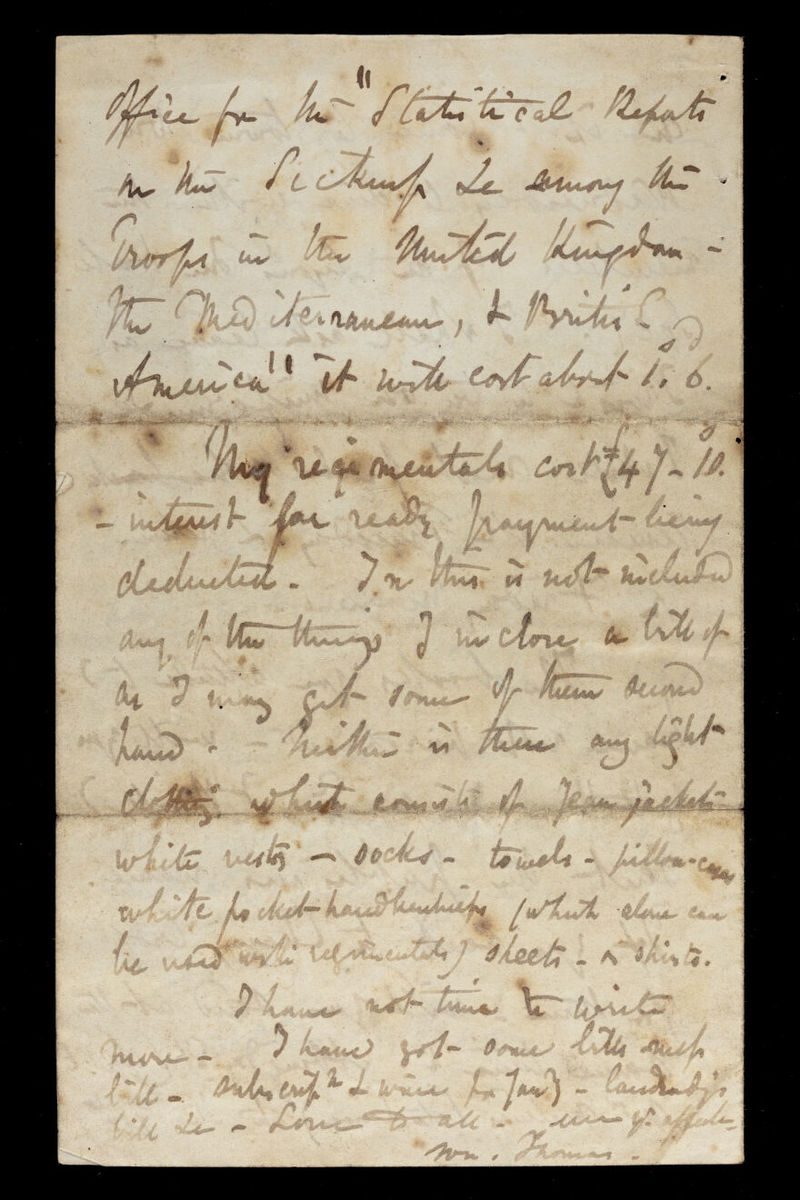 Office for the "Statistical Reports
on the Sickness &c among the
Troops in the United Kingdom -
the Mediterranean, & British
America" it will cost about 1s. 6d.
My regimentals cost £47 - 10s.
- interest for ready payment being
deducted - In this is not included
any of the things I inclose a bill of
as I may get some of them second
hand - - Neither is there any light
clothing which consists of Jean jackets
white vests - socks - towels - pillow-cases
white pocket-handkerchiefs (which alone can
be used with regimentals) sheets - or shirts.
I have not time to write
more - I have got some bills mess
bill - subscripn & wine for Jany - laundry's
bill &c - Love to all - ever yr. affecte.
son. Thomas.